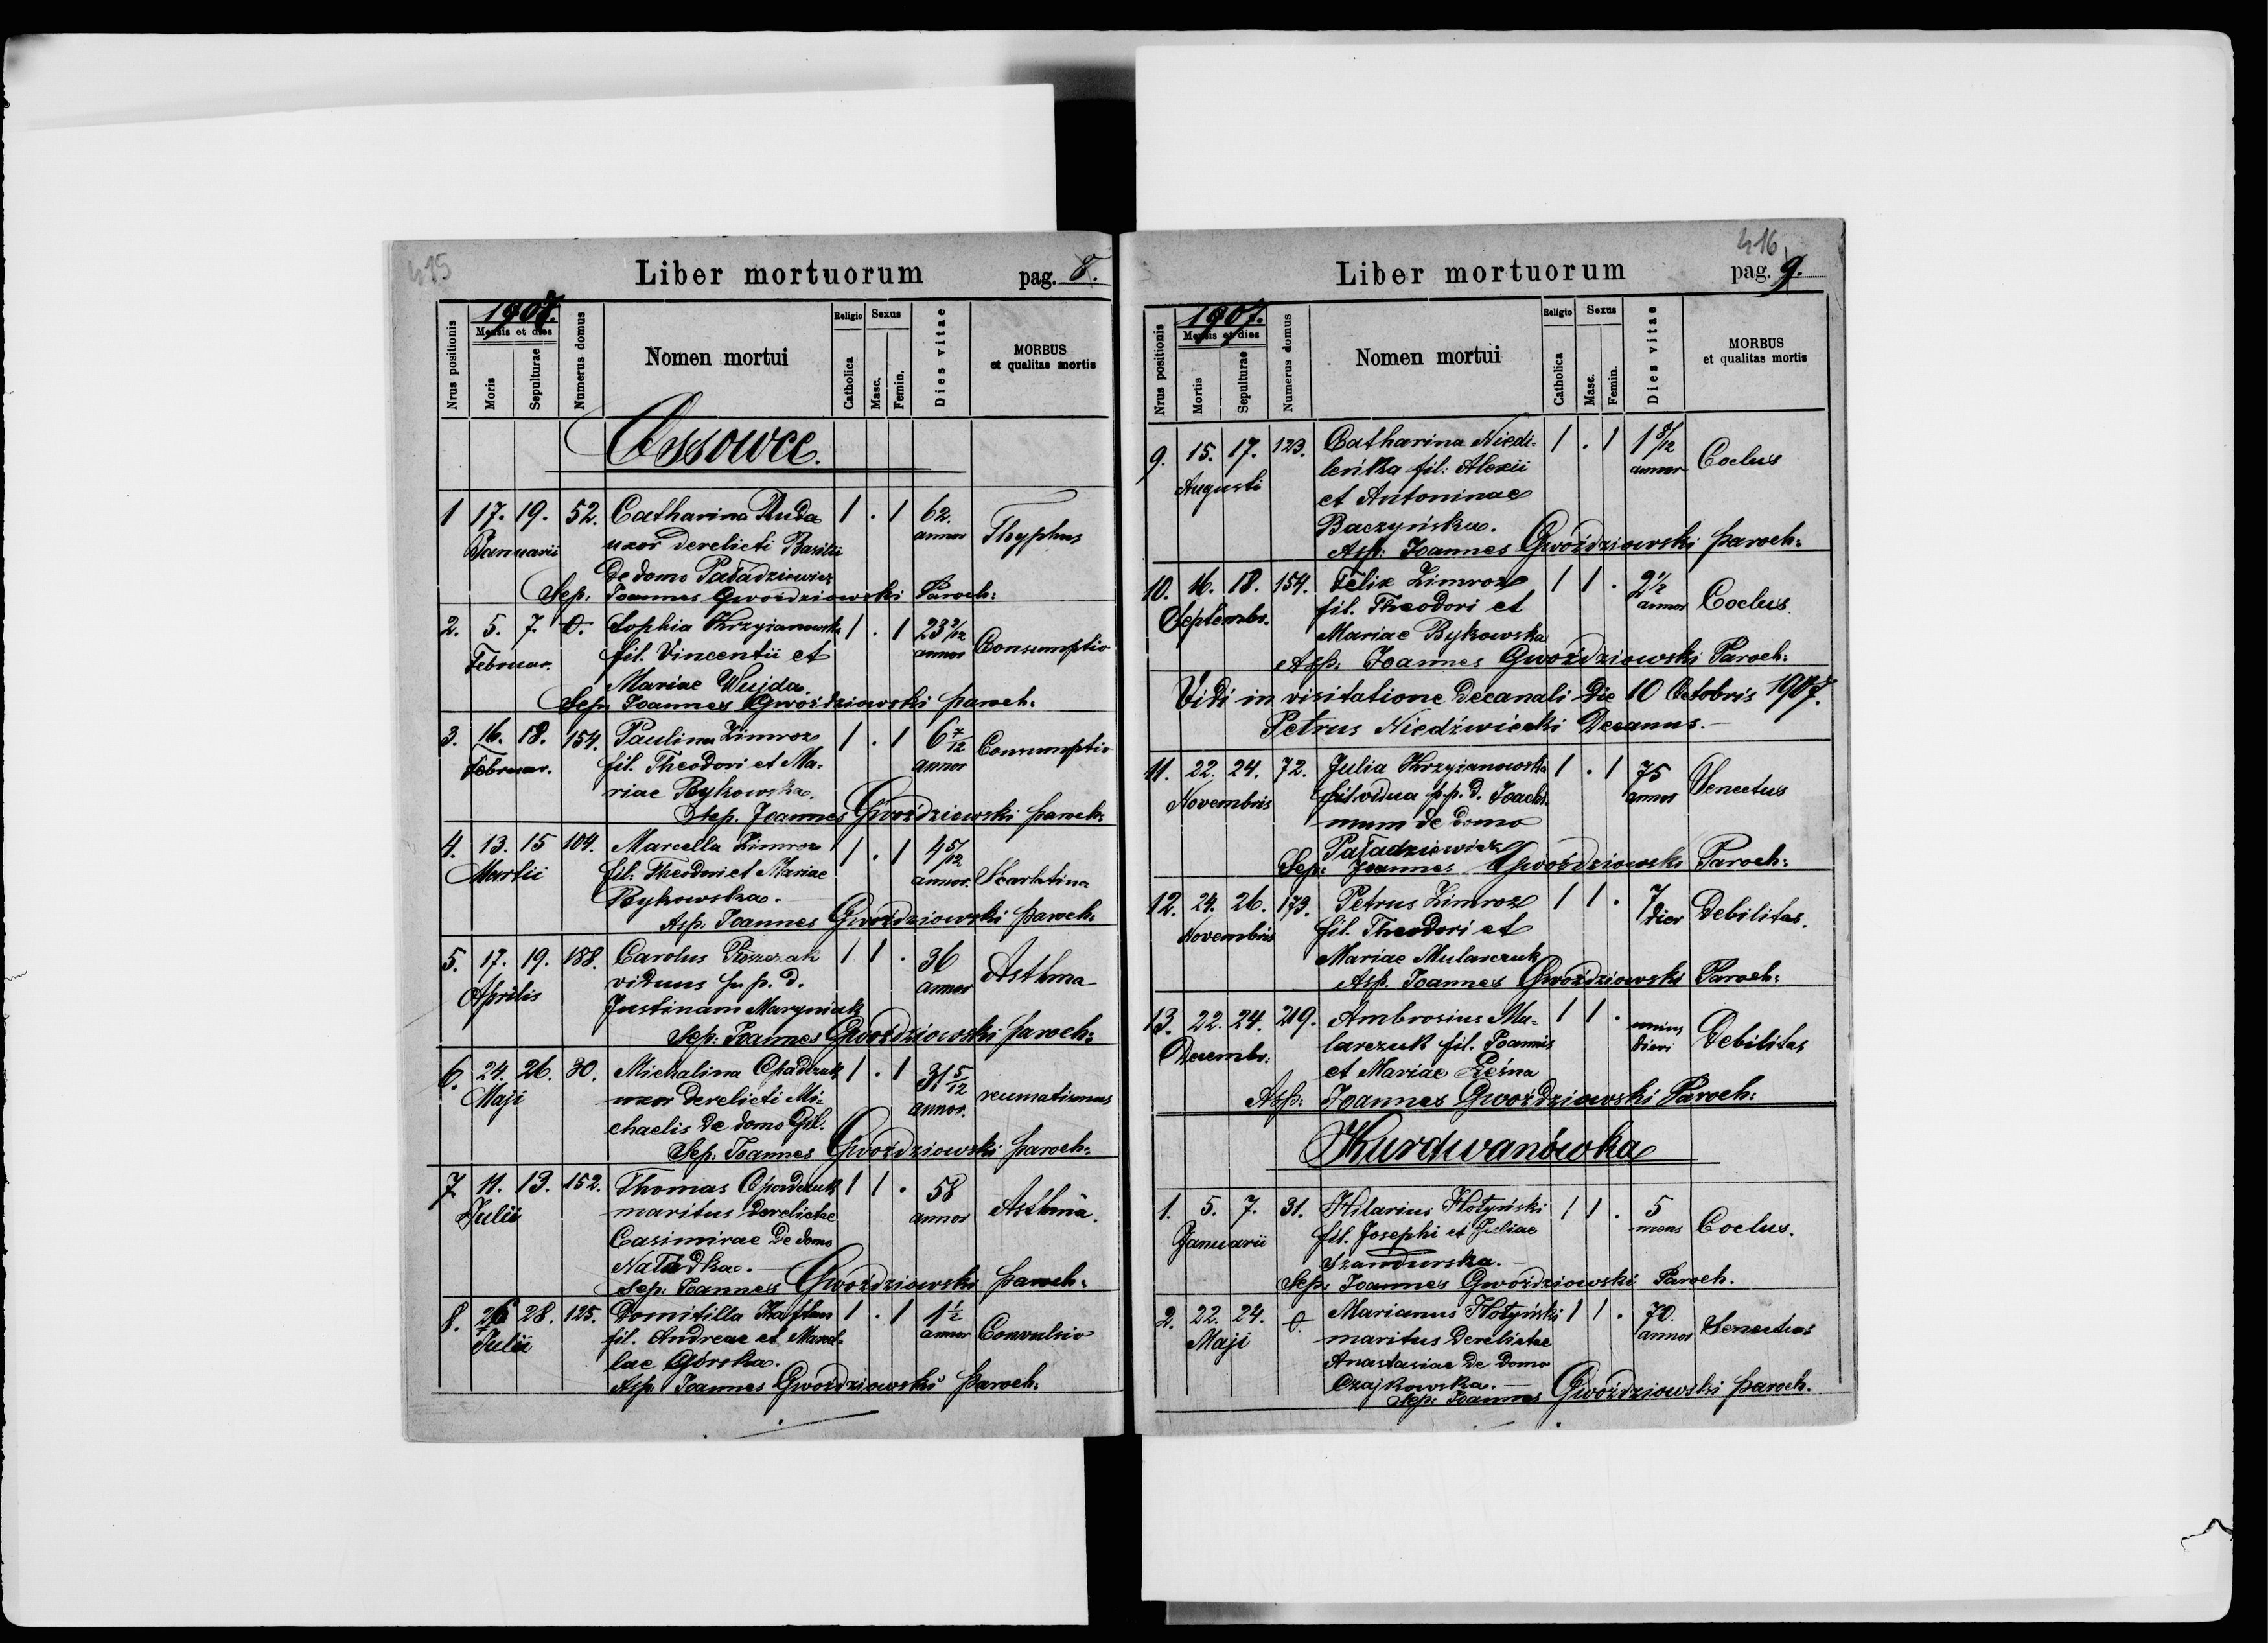 415
Liber mortuorum pag. 8.
Nrus positionis
1907.
Mensis et dies
Moris
Sepulturae
Numerus domus
Nomen mortui
Religio
Catholica
Sexus
Masc.
Femin.
Dies vitae
MORBUS
et qualitas mortis
Ossowce.
1 17. 19. 52. Catharina Ruda 1 . 1 62.
Januarii uxor derelicti Basilii annor Thyphus
de domo Paładziewicz
Sep: Joannes Gwoździowski Paroch:
2. 5. 7. 0. Sophia Krzyżanowska 1 . 1 23 2/12
Februar. fil. Vincentii et annor Consumptio
Mariae Wujda.
Sep: Joannes Gwoździowski paroch:
3. 16. 18. 154. Paulina Zimroz 1 . 1 6 7/12 Consumptio
Februar. fil. Theodori et Ma- annor
riae Bykowska.
Sep. Joannes Gwoździowski paroch:
4. 13. 15 104. Marcella Zimroz 1 . 1 4 5/12
Martii fil. Theodori et Mariae annor. Skarlatina
Bykowska.
Asp: Joannes Gwoździowski paroch:
5. 17. 19. 188. Carolus 1 1 . 36
Aprilis viduus p. p. d. annor Asthma
Justinam Maryniak
Sep: Joannes Gwoździowski paroch:
6. 24. 26. 30. Michalina Opadczuk 1 . 1 31 5/12
Maji uxor derelicti Mi- annor. reumatismus
chaelis de domo Gil.
Sep. Joannes Gwoździowski paroch:
7 11. 13. 152. Thomas Opadczuk 1 1 . 58
Julii maritus derelictae annor Asthma.
Casimirae de domo
Sep: Joannes Gwoździowski paroch:
8. 26 28. 125. Domitilla Kaftan 1 . 1 1 1/2
Julii fil. Andreae et Marcel- annor Convulsio
lae Górska.
Asp: Joannes Gwoździowski paroch:
416
Liber mortuorum pag. 9.
Nrus positionis
1907.
Mensis et dies
Mortis
Sepulturae
Numerus domus
Nomen mortui
Religio
Catholica
Sexus
Masc.
Femin.
Dies vitae
MORBUS
et qualitas mortis
9. 15. 17. 123. Catharina Niedi- 1 . 1 1 8/12
Augusti leńka fil: Alexii annor Coclus
et Antoninae
Baczyńska.
Asp: Joannes Gwoździowski paroch:
10. 16. 18. 154. Felix Zimroz 1 1 . 2 1/2
Septembr. fil. Theodori et annor Coclus.
Mariae Bykowska
Asp: Joannes Gwoździowski Paroch:
Vidi in visitatione decanali die 10 Octobris 1907.
Petrus Niedźwiecki Decanus.-
11. 22. 24. 72. Julia Krzyżanowska 1 . 1 75
Novembris vidua p. p. d. Joachi- annor Senectus
mum de domo
Paładziewicz
Sep: Joannes Gwoździowski Paroch:
12. 24. 26. 173. Petrus Zimroz 1 1 . 7
Novembris fil. Theodori et dier Debilitas.
Mariae Mularczuk
Asp. Joannes Gwoździowski Paroch:
13. 22. 24. 219. Ambrosius Mu- 1 1 . unius
Decembr: larczuk fil. Joannis diei Debilitas
et Mariae Leśna
Asp: Joannes Gwoździowski Paroch:
Kurdwanówka
1. 5. 7. 31. Hilarius Hołyński 1 1 . 5
Januarii fil. Josephi et Juliae mens Coclus.
Szandurska.
Sep: Joannes Gwoździowski Paroch.
2. 22. 24. 0. Marianus Hołyński 1 1 . 70.
Maji maritus derelictae annor Senectus
Anastasiae de domo
Czajkowska.
Sep: Joannes Gwoździowski paroch.